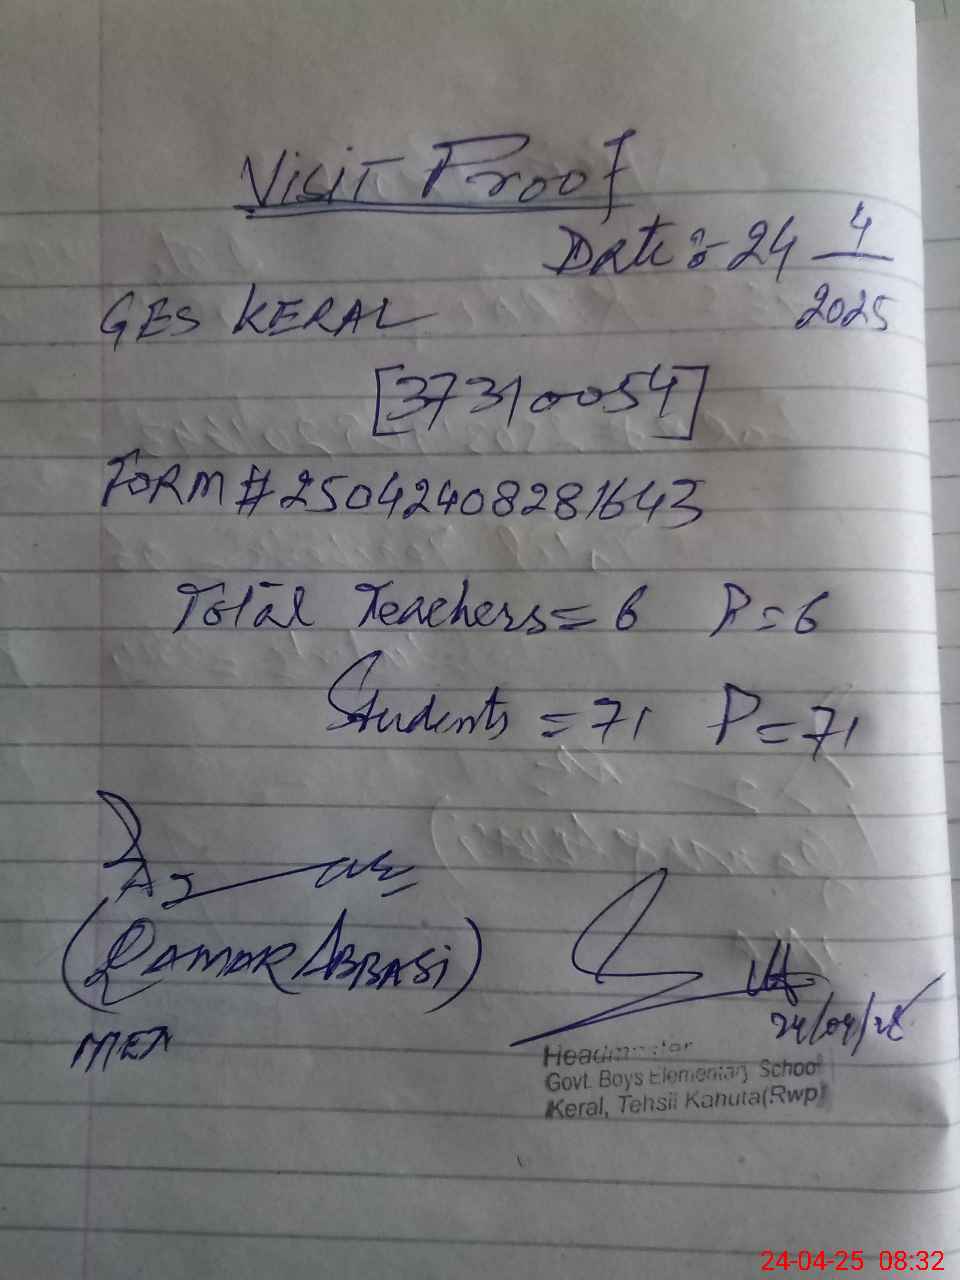 Visit Proof
Date :- 24 4
2025
GES KERAL
[37310054]
FORM # 25042408281643
Total Teachers = 6 P = 6
Students = 71 P = 71
(QAMAR ABBASI)
MEA
24/04/25
Headmaster
Govt. Boys Elementary School
Keral, Tehsil Kahuta(Rwp)
24-04-25 08:32